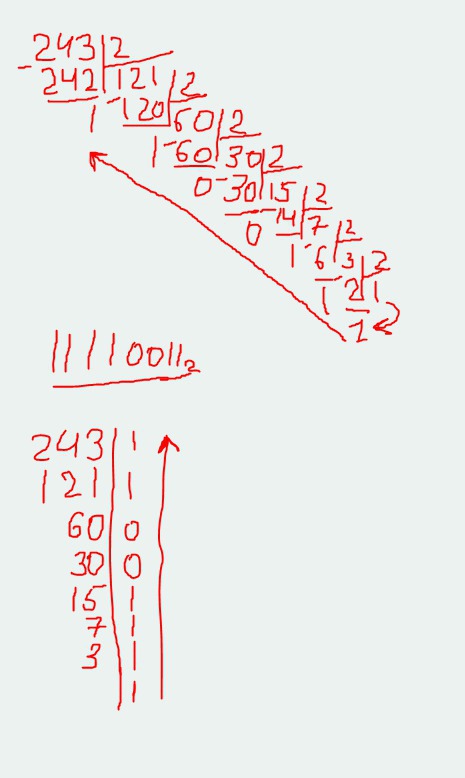 243 2
-242 121 2
1 -120 60 2
1 -60 30 2
0 -30 15 2
0 -14 7 2
1 -6 3 2
1 2 1
1
11110011₂
243 1
121 1
60 0
30 0
15 1
7 1
3 1
1